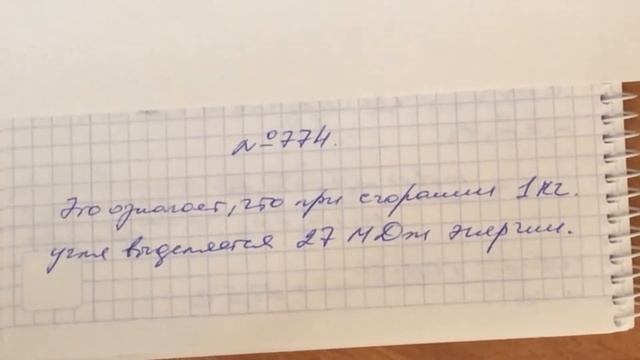 №774.
Это означает, что при сгорании 1 кг.
угля выделяется 27 МДж энергии.